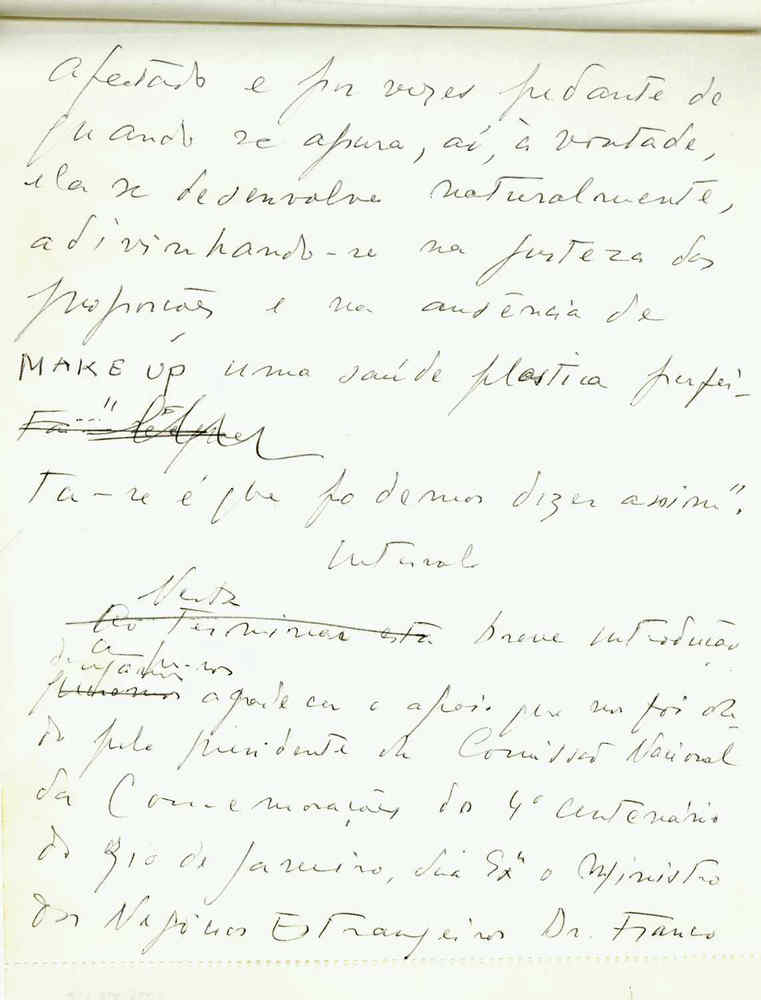 afectado e por vezes pedante de
quando se apura, aí, à vontade,
ela se desenvolve naturalmente,
adivinhando-se na justeza das
proporções e na ausência de
MAKE UP uma saúde plastica perfei-
ta-se é que podemos dizer assim".
Nesta
Ao terminar esta breve introdução
agradecer o apoio que nos foi da-
do pelo presidente da Comissão Nacional
das Comemorações do 4º centenário
do Rio de Janeiro, sua Exª o Ministro
dos Negócios Estrangeiros Dr. Franco